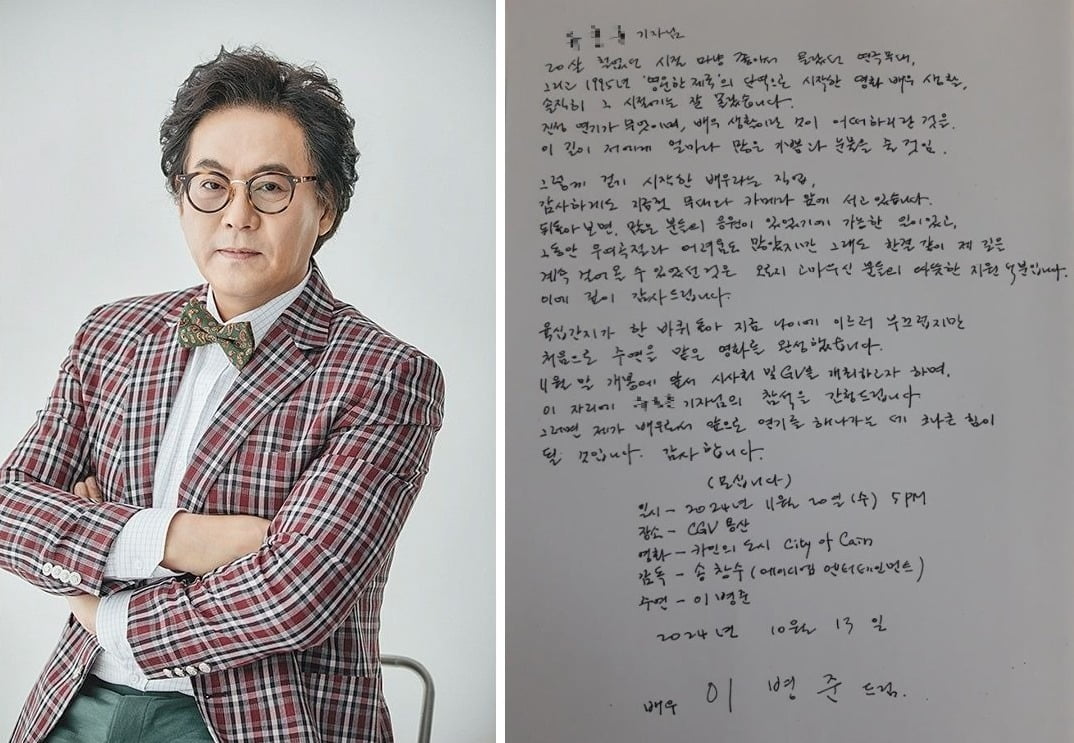 기자님
20살 철없던 시절 마냥 좋아서 올랐던 연극무대,
그리고 1995년 '영원한 제국'의 단역으로 시작한 영화 배우 생활,
솔직히 그 시절에는 잘 몰랐습니다.
진정 연기가 무엇이며, 배우 생활이란 것이 어떠하리란 것은.
이 길이 저에게 얼마나 많은 기쁨과 눈물을 줄 것인.
그렇게 걷기 시작한 배우라는 직업,
감사하게도 지금껏 무대와 카메라 앞에 서고 있습니다.
뒤돌아보면, 많은 분들의 응원이 있었기에 가능한 일이었고,
그동안 우여곡절과 어려움도 많았지만 그래도 한결 같이 제 길은
계속 걸어올 수 있었던 것은 오로지 고마우신 분들의 따뜻한 지원 덕분입니다.
이에 깊이 감사드립니다.
육십간지가 한 바퀴 돌아 지금 나이에 이르러 부끄럽지만
처음으로 주연을 맡은 영화를 완성했습니다.
11월 말 개봉에 앞서 시사회 및 GV를 개최하고자 하며,
이 자리에 기자님의 참석을 간청드립니다
그러면 제가 배우로서 앞으로 연기를 해나가는 데 크나큰 힘이
될 것입니다. 감사합니다.
(모십니다)
일시 - 2024년 11월 20일 (수) 5PM
장소 - CGV 용산
영화 - 카인의 도시 City of Cain
감독 - 송창수 (에이디엡 엔터테인먼트)
주연 - 이병준
2024년 10월 13일
배우 이병준 드림.